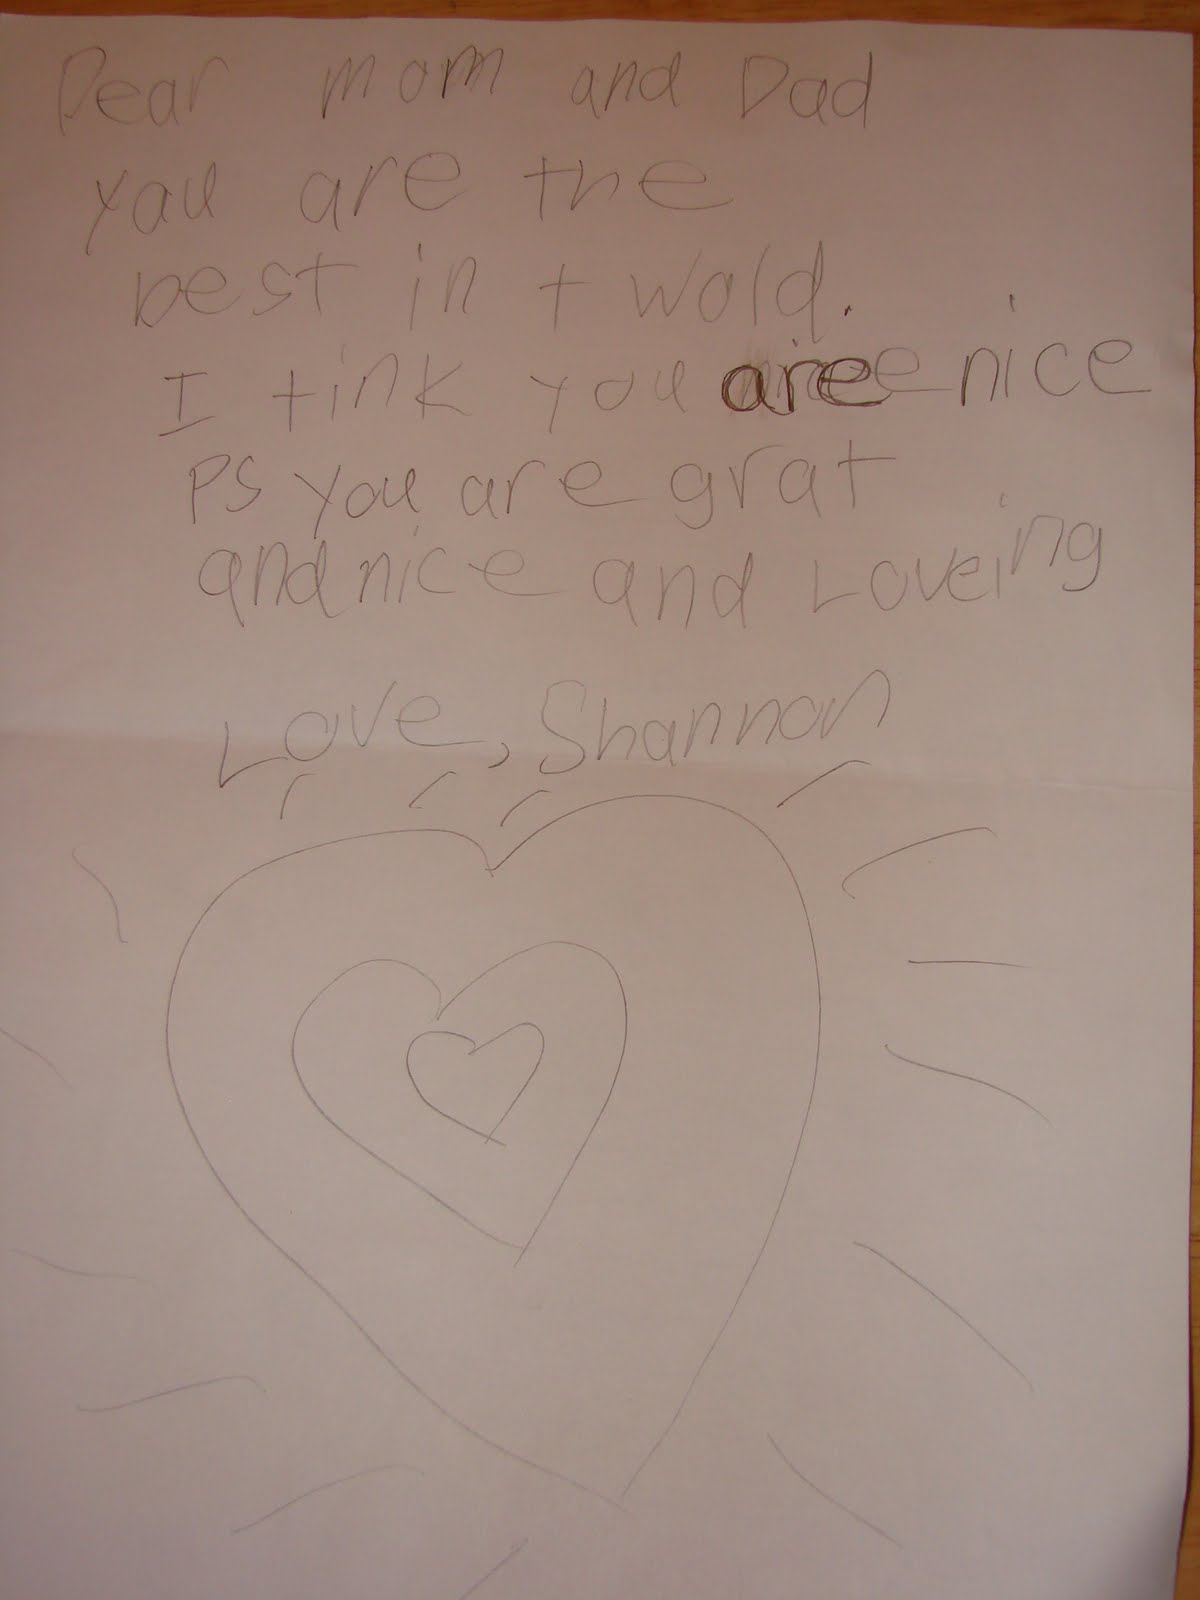 Dear mom and Dad
you are the
best in t wold.
I tink you are nice
PS you are grat
and nice and Loveing
Love, Shannon